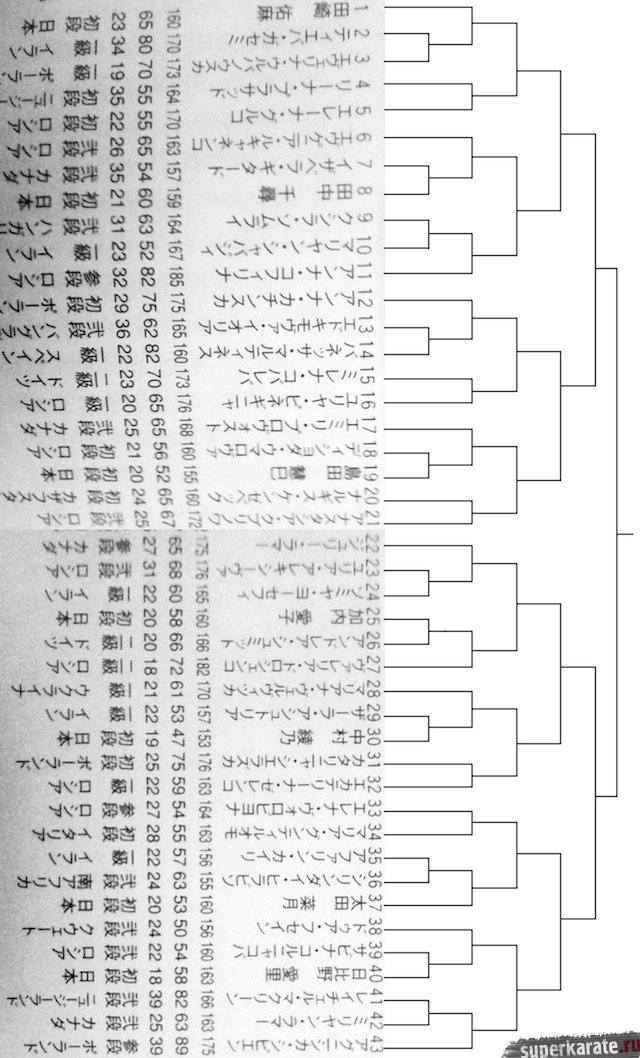 1 田﨑 佑麻 160 65 23 初段 日本
2 ティエバ・ガセミ 170 80 34 一級 イラン
3 エヴェリナ・ウルバノウスカ 173 70 19 一級 ポーラン
4 リーナ・プラサッド 164 55 35 初段 ニュージー
5 エレーナ・グルコ 170 55 22 初段 ロシア
6 エウゲニア・ルキャネンコ 163 65 26 弐段 ロシア
7 イザベラ・ギタード 157 54 35 弐段 カナダ
8 田中 千尋 159 60 21 初段 日本
9 クシラ・ソムライ 164 63 31 弐段 ハンガリ
10 マリヤン・シャバジィ 167 52 23 一級 イラン
11 アンナ・コフィリナ 185 82 32 参段 ロシア
12 アンナ・カチンスカ 175 75 29 初段 ポーラン
13 エドキモヴァ・イオリア 165 62 36 弐段 バングラ
14 バネッサ・マルティネス 160 82 22 一級 スペイン
15 ミレナ・コバレバ 173 70 23 二級 ドイツ
16 ユリヤ・ピネギニャ 176 65 20 一級 ロシア
17 エミリ・プロヴォスト 168 65 25 弐段 カナダ
18 ディショダ・ウマロヴァ 160 56 21 初段 ロシア
19 島田 慧巳 155 52 20 初段 日本
20 ナルギス・ケンセベック 160 65 24 初段 カザフスタ
21 アナスタシア・クブリノワ 172 67 25 弐段 ロシア
22 ジュリー・ラマー 175 65 27 参段 カナダ
23 ユリア・アレキシーヴァ 176 68 31 弐段 ロシア
24 ソミヤ・ヨーセフィ 165 60 22 一級 イラン
25 加内 愛子 160 58 20 初段 日本
26 アンドレア・シュミット 166 66 20 一級 ドイツ
27 ヴァレリア・ドロシェンコ 182 72 18 二級 ロシア
28 マリアナ・ヴェルヴィツカ 170 61 21 一級 ウクライナ
29 サーラ・アシュドリア 157 53 22 一級 イラン
30 中村 綾乃 153 47 19 初段 日本
31 カタリニャ・シェラズカ 176 75 25 初段 ポーランド
32 エカテリーナ・ゼレンコ 163 59 22 一級 ロシア
33 エレナ・ヴォロビヨナ 164 54 27 参段 ロシア
34 マリア・グンティルオモ 163 55 28 初段 イタリア
35 アファリン・カイリ 156 57 22 一級 イラン
36 シリンダイ・ヒラビソ 155 63 24 弐段 南アフリカ
37 太田 菜月 160 53 20 初段 日本
38 ドゥア・フセイン 156 50 24 弐段 クウェート
39 サビナ・コルニャコバ 160 54 22 弐段 ロシア
40 日比野 愛里 163 58 18 初段 日本
41 レイチェル・マクリーン 166 82 39 弐段 ニュージーランド
42 ミリヤン・ラマー 163 63 25 弐段 カナダ
43 アグニシカ・シピエン 175 89 39 参段 ポーランド
superkarate.ru